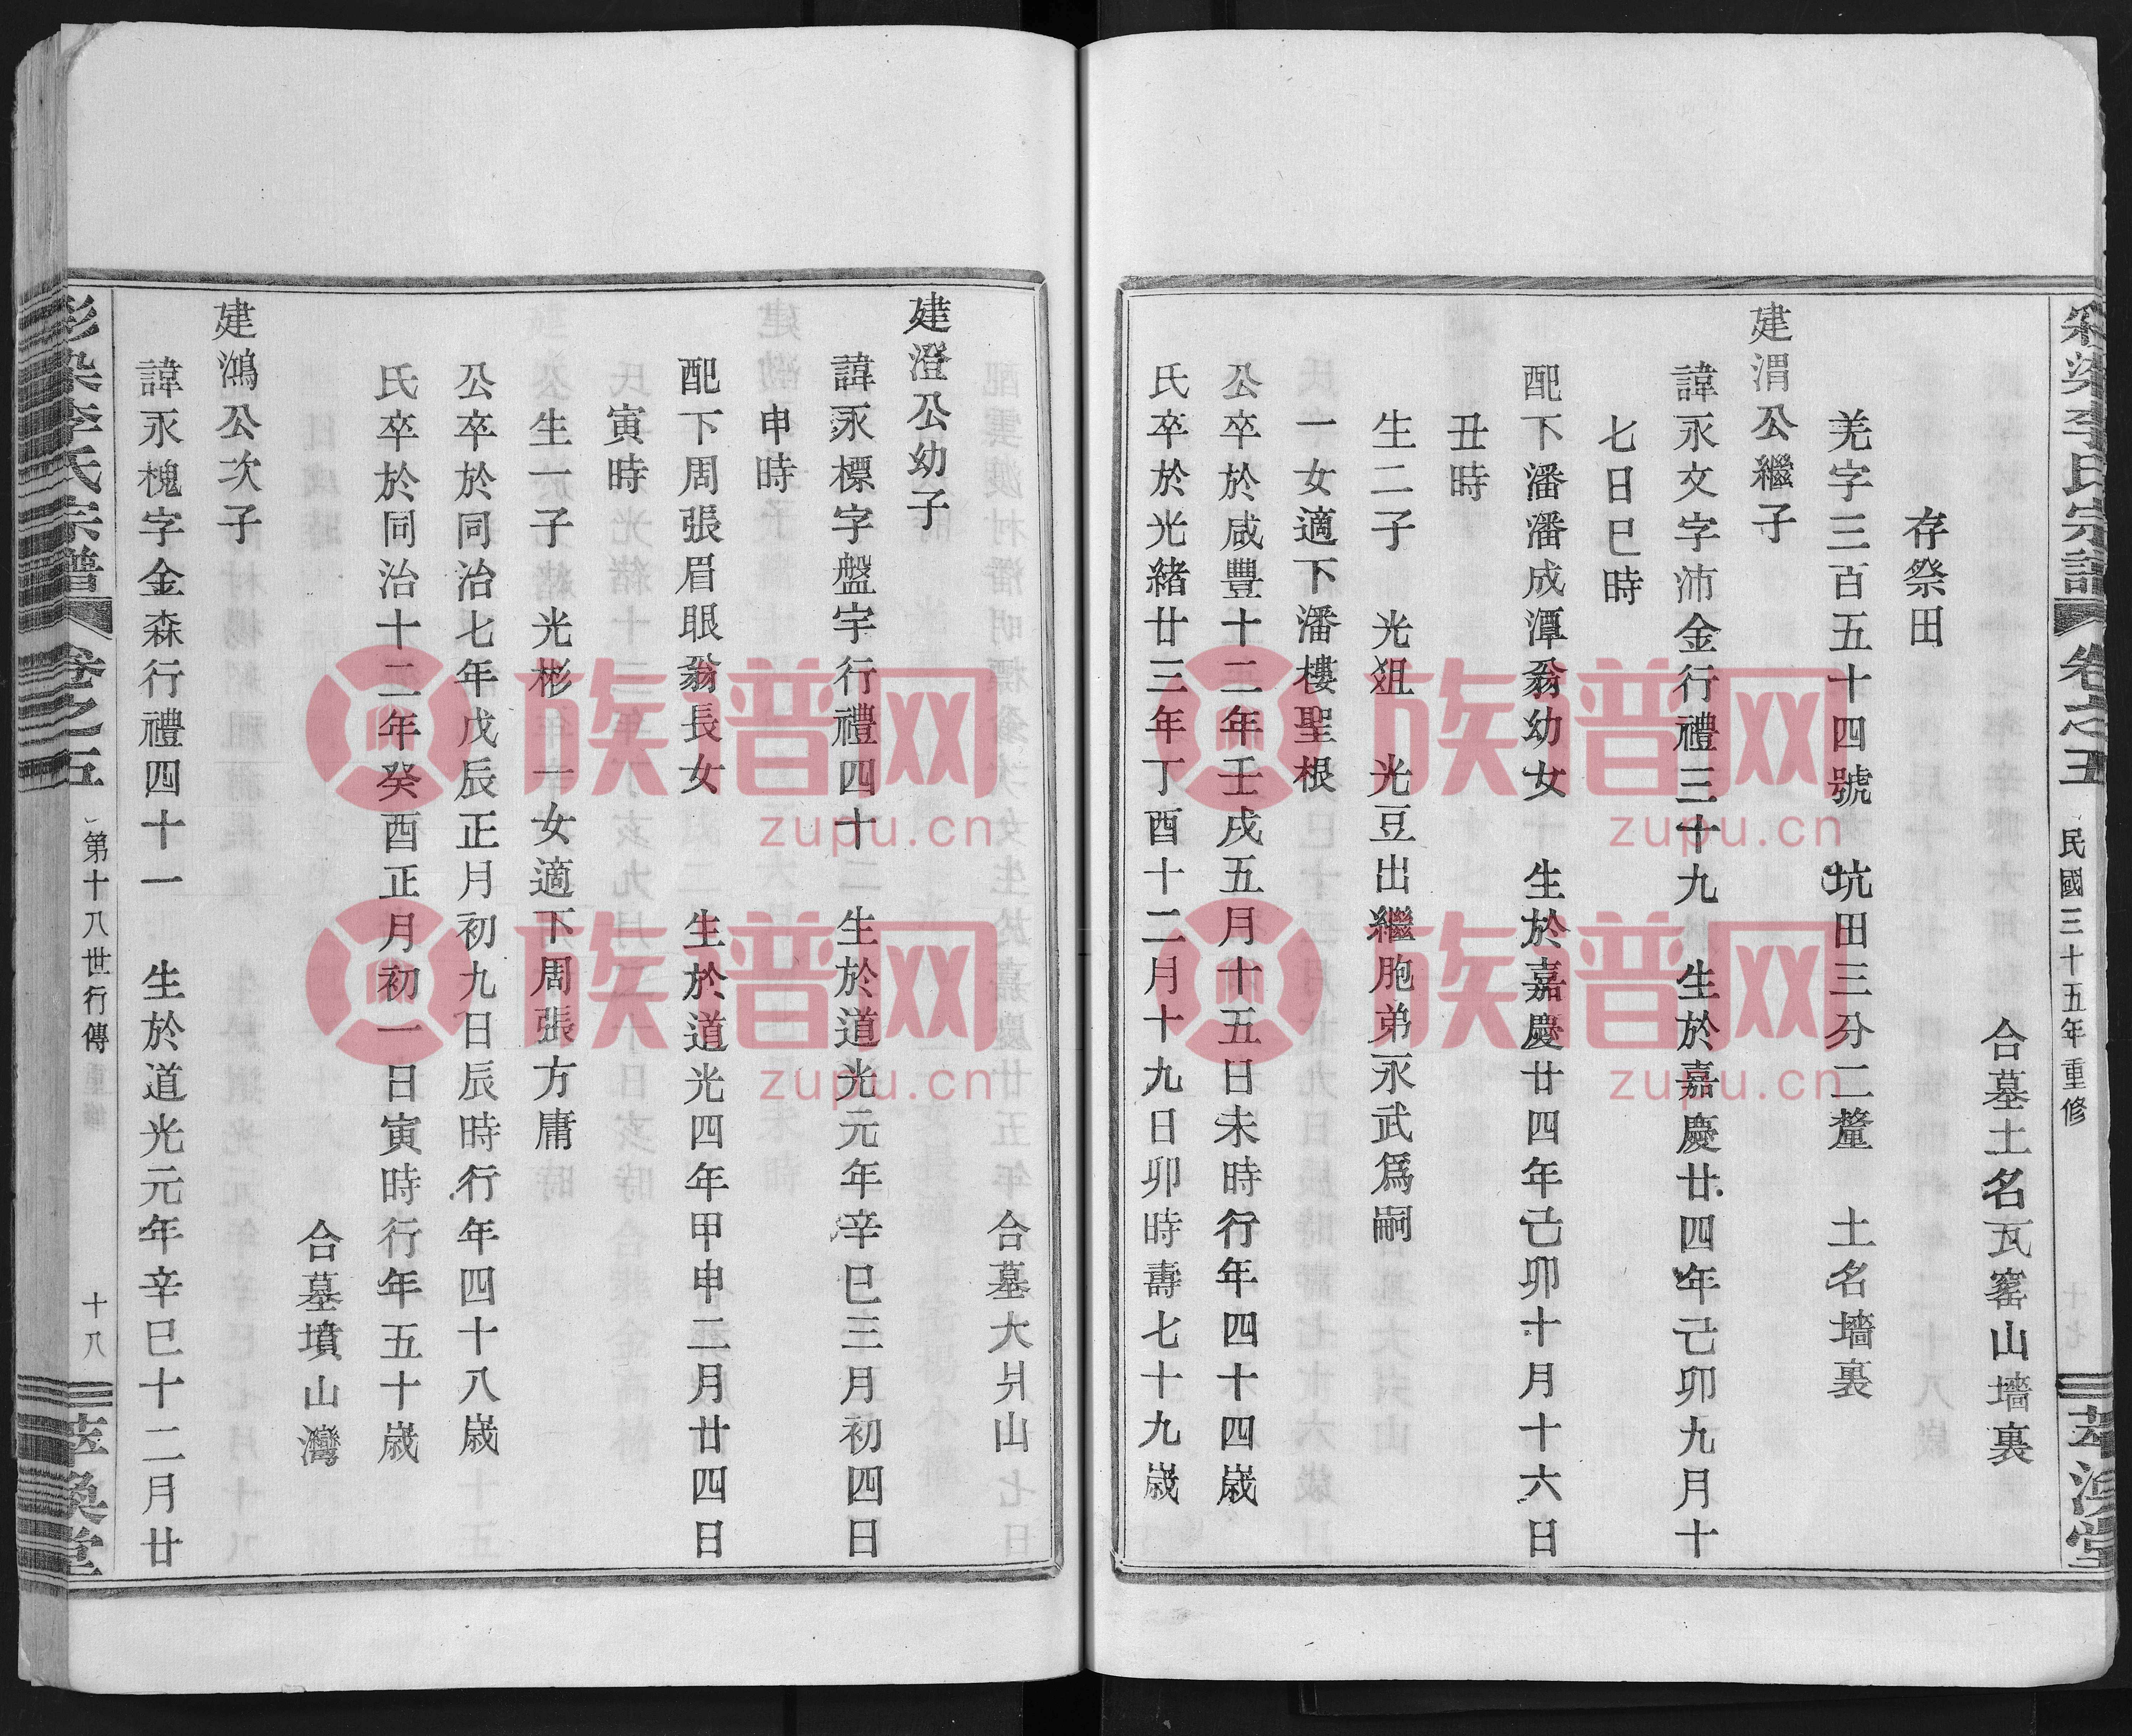 民國三十五年重修
合墓土名瓦窰山墻裏
存祭田
羌字三百五十四號 坑田三分二釐 土名墻裏
建渭公繼子
諱永文字沛金行禮三十九 生於嘉慶廿四年己卯九月十
七日巳時
配下潘潘成潭翁幼女 生於嘉慶廿四年己卯十月十六日
丑時
生二子 光狙 光豆出繼胞弟永武爲嗣
一女適下潘樓聖根
公卒於咸豐十二年壬戌五月十五日未時行年四十四歲
氏卒於光緒廿三年丁酉十二月十九日卯時壽七十九歲
合墓大爿山
建澄公幼子
諱永標字盤宇行禮四十 生於道光元年辛巳三月初四日
申時
配下周張眉眼翁長女 生於道光四年甲申二月廿四日
寅時
生一子 光彬 一女適下周張方庸
公卒於同治七年戊辰正月初九日辰時行年四十八歲
氏卒於同治十二年癸酉正月初一日寅時行年五十歲
合墓墳山灣
建鴻公次子
諱永槐字金森行禮四十一 生於道光元年辛巳十二月廿
李氏宗譜 卷之五 第十八世行傳 十八 萃渙堂
族普网
zupu.cn
族普网
zupu.cn
族普网
zupu.cn
族普网
zupu.cn